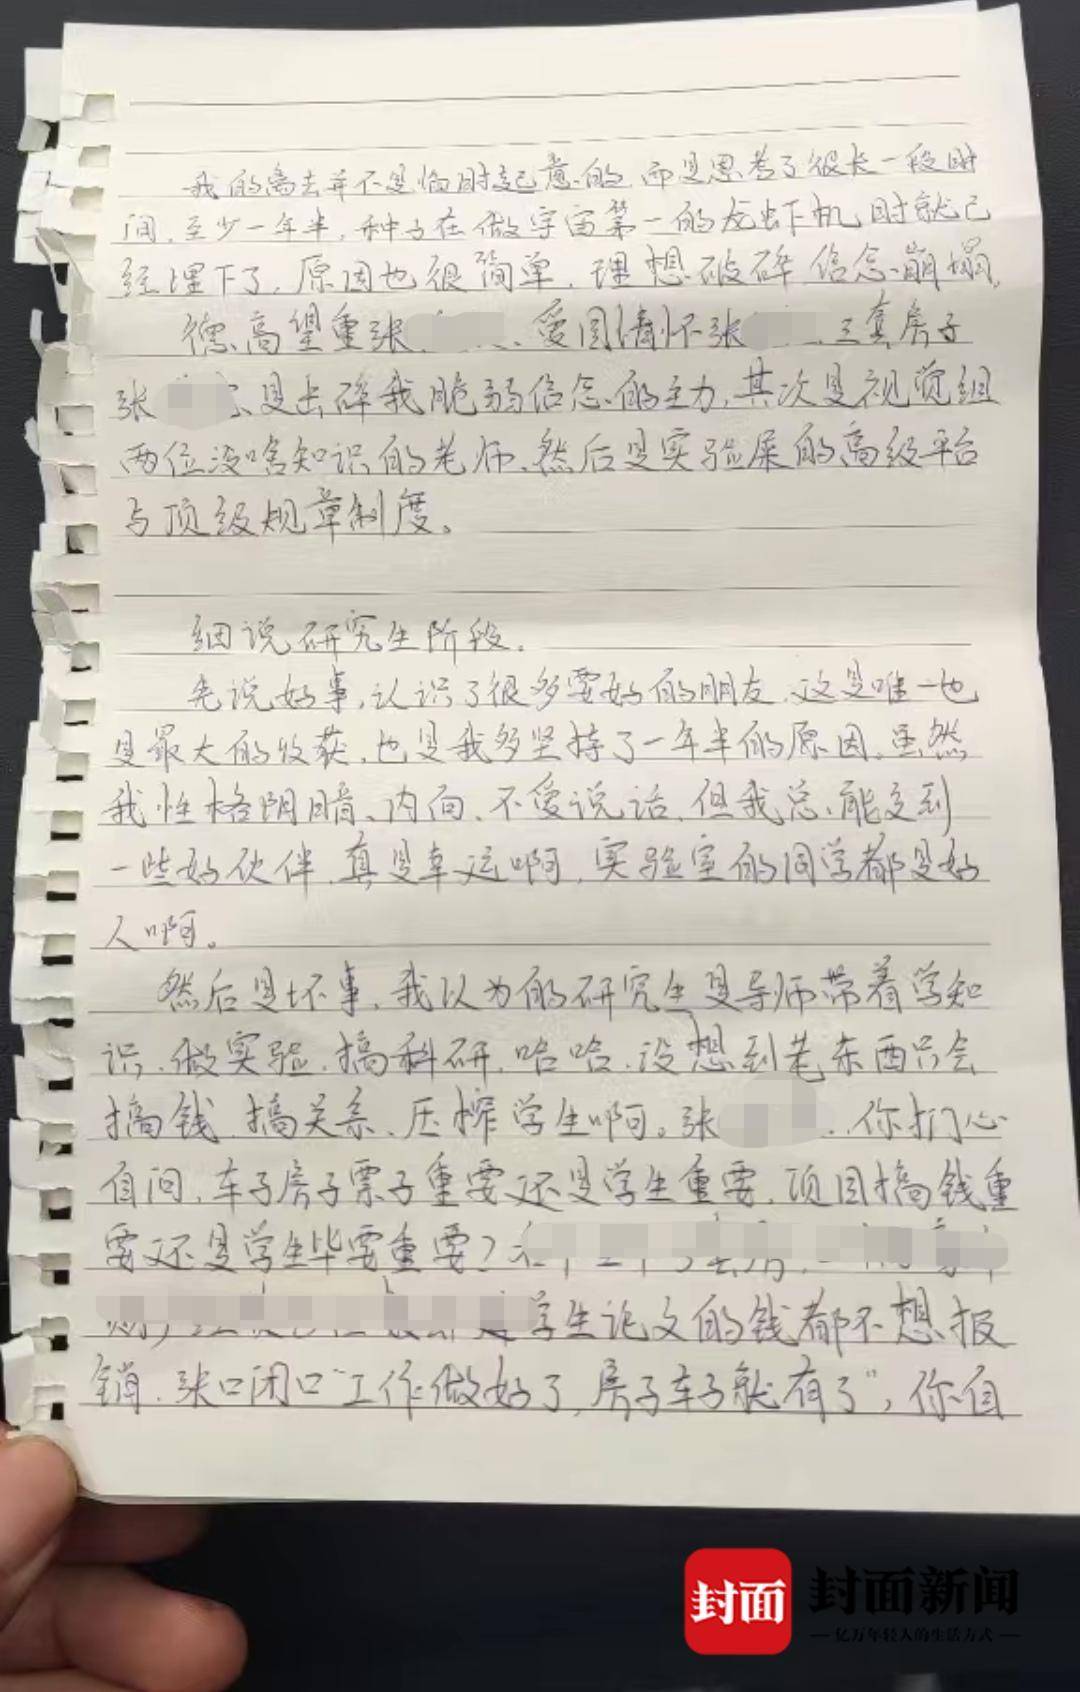 我的离去并不是临时起意的,而是思考了很长一段时
间,至少一年半,种子在做宇宙第一的龙虾机时就已
经埋下了,原因也很简单,理想破碎,信念崩塌,
德高望重张 、爱国情怀张 、三套房子
张 是击碎我脆弱信念的主力,其次是视觉组
两位没啥知识的老师,然后是实验室的高级平台
与顶级规章制度。
细说研究生阶段,
先说好事,认识了很多要好的朋友,这是唯一也
是最大的收获,也是我多坚持了一年半的原因,虽然
我性格阴暗、内向、不爱说话,但我总能交到
一些好伙伴,真是幸运啊,实验室的同学都是好
人啊。
然后是坏事,我以为的研究生是导师带着学知
识,做实验,搞科研,哈哈,没想到老东西只会
搞钱、搞关系、压榨学生啊。张 ,你扪心
自问,车子房子票子重要还是学生重要,项目搞钱重
要还是学生毕业重要?
学生论文的钱都不想报
销,张口闭口“工作做好了,房子车子就有了”,你自
封面
封面新闻
亿万年轻人的生活方式